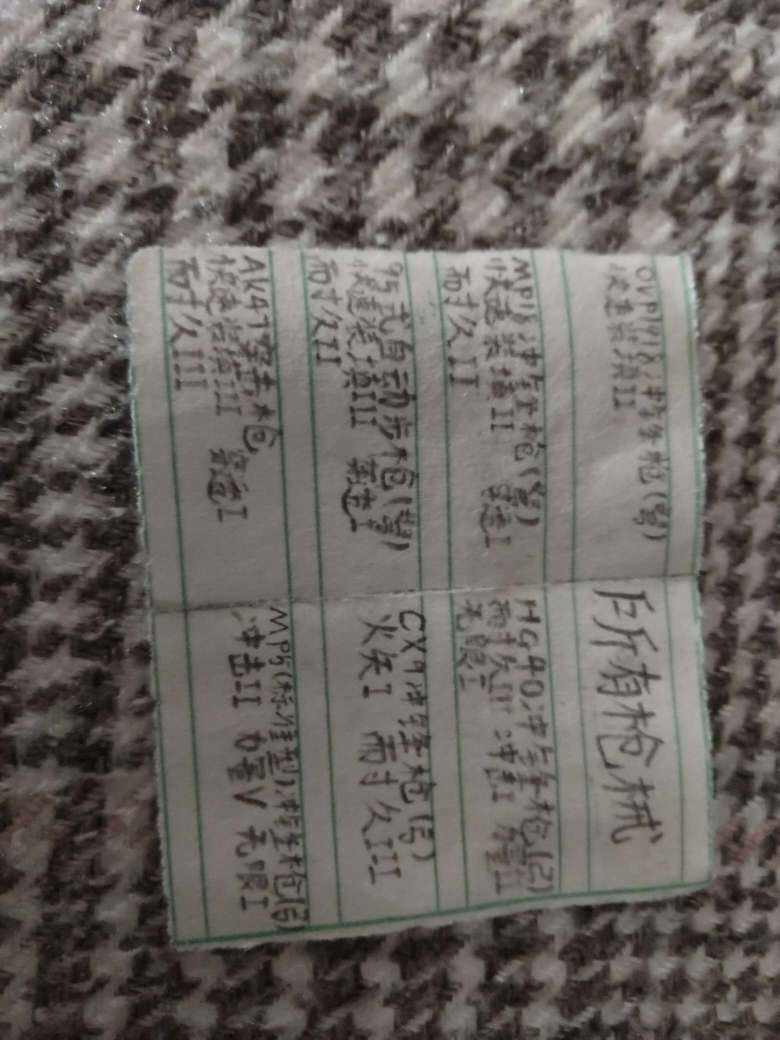 OVP1918冲锋枪(弩)
快速装填II
MP18冲锋枪(弩)
快速装填II 穿透I
耐久II
95式自动步枪(弩)
快速装填III 穿透I
耐久II
AK47突击枪
快速装填III 穿透I
耐久III
所有枪械
HG40冲锋枪
冲击I
无限I
CX9冲锋枪(弓)
火矢I 耐久III
MP5(标准型)冲锋枪(弓)
冲击II 力量V 无限I